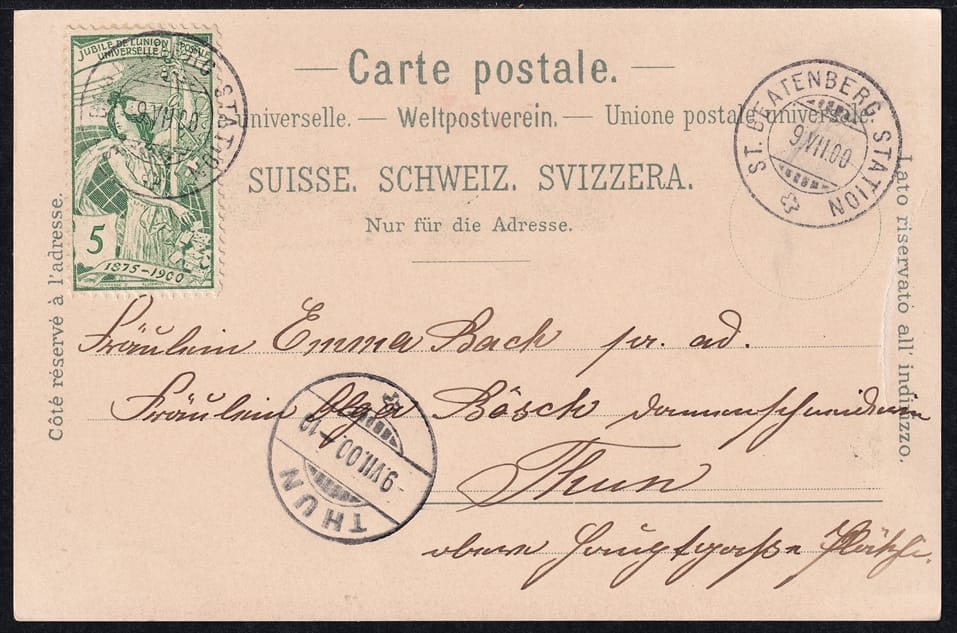 JUBILÉ DE L'UNION POSTALE
UNIVERSELLE
5
1875–1900
STATION
9.VII.00
Carte postale.
universelle. — Weltpostverein. — Unione postale universale.
SUISSE. SCHWEIZ. SVIZZERA.
Nur für die Adresse.
ST. BEATENBERG. STATION
9.VII.00
Côté réservé à l'adresse.
Lato riservato all' indirizzo.
Fräulein Emma Bach pr. ad.
Fräulein Olga Bösch
Thun
obere Hauptgasse
THUN
9.VII.00.4-12